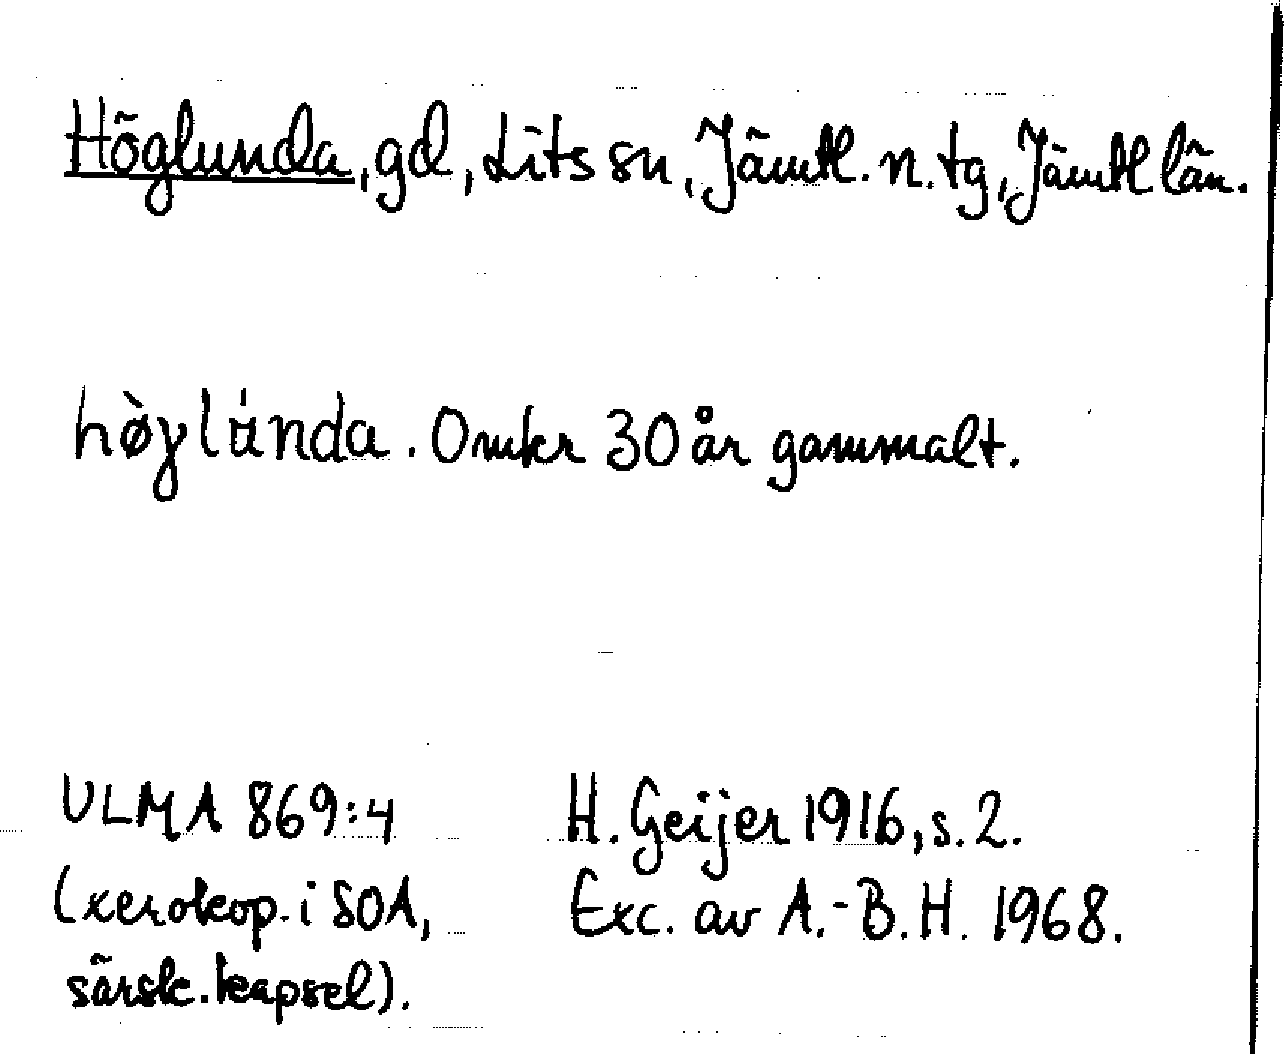 Höglunda, gd, Lits sn, Jämtl. n. tg, Jämtl län.
hø̀γlúnda. Omkr 30 år gammalt.
ULMA 869:4 H. Geijer 1916, s. 2.
(xerokop. i SOA, Exc. av A.-B. H. 1968.
särsk. kapsel).